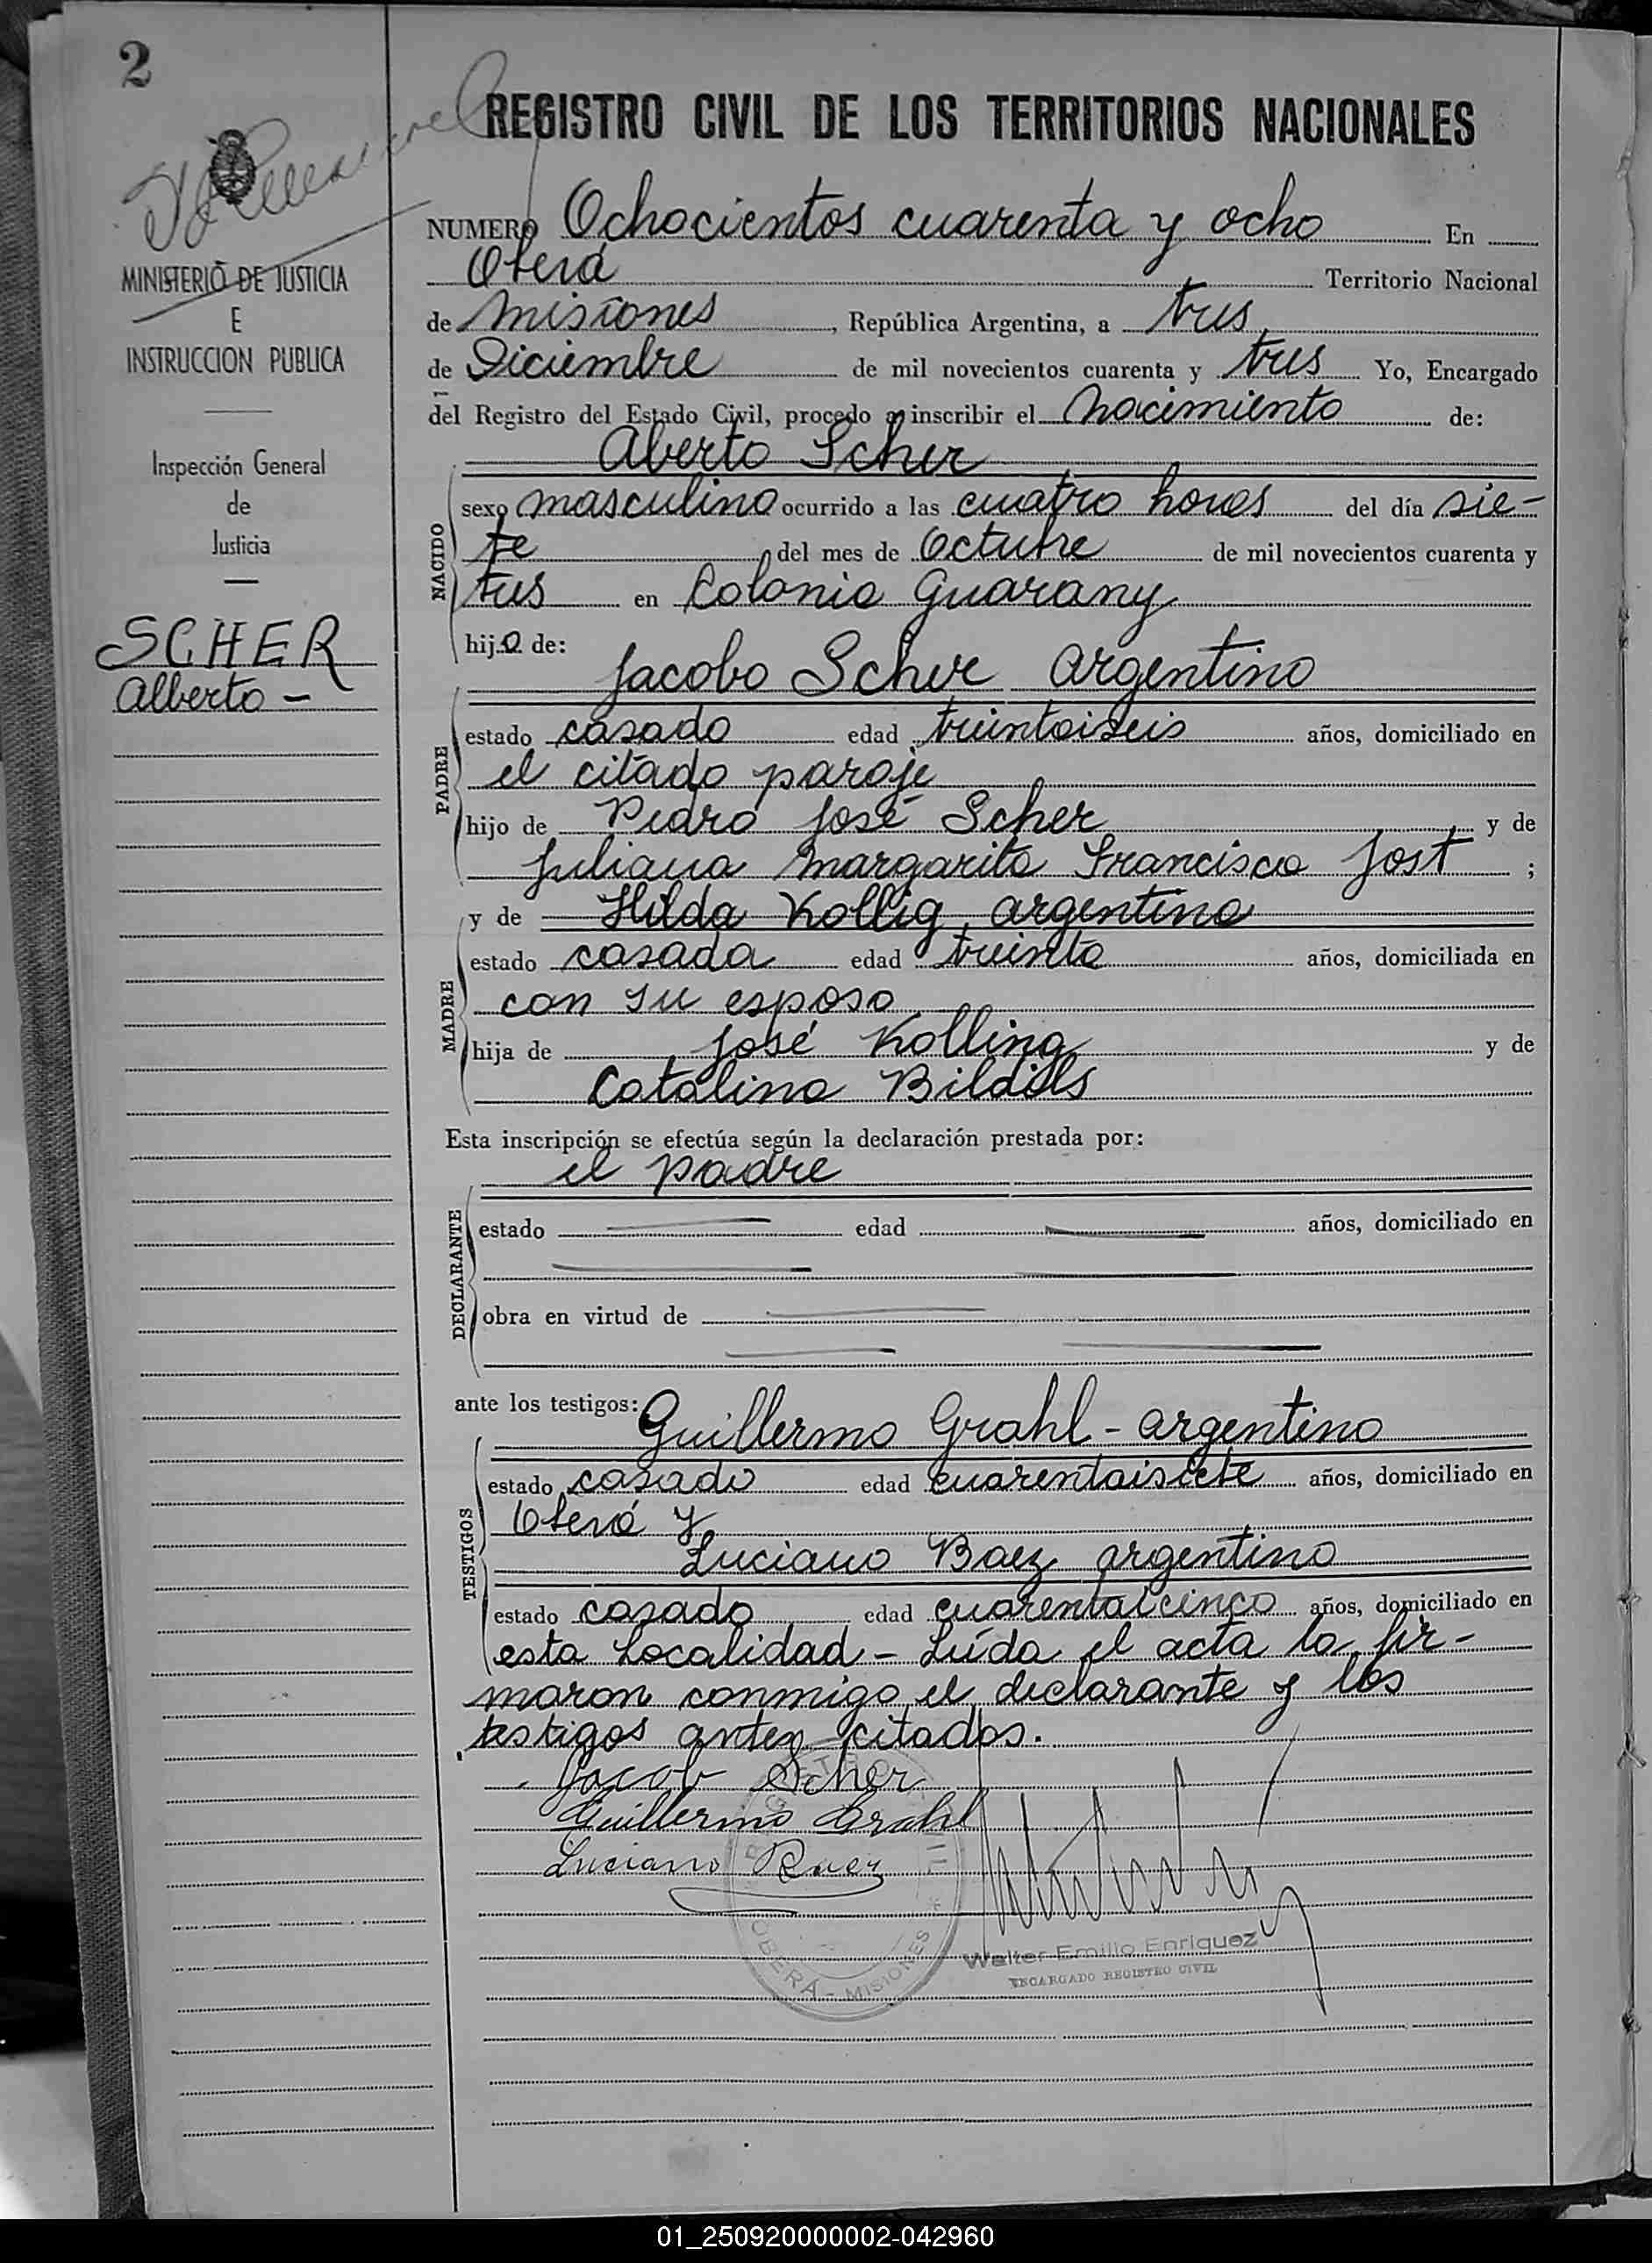 2
REGISTRO CIVIL DE LOS TERRITORIOS NACIONALES
MINISTERIO DE JUSTICIA
E
INSTRUCCION PUBLICA
Inspección General
de
Justicia
SCHER
Alberto -
NUMERO Ochocientos cuarenta y ocho En
Oberá Territorio Nacional
de Misiones, República Argentina, a tres
de Diciembre de mil novecientos cuarenta y tres Yo, Encargado
del Registro del Estado Civil, procedo a inscribir el nacimiento de:
Aberto Scher
NACIDO
sexo masculino ocurrido a las cuatro horas del día sie-
te del mes de Octubre de mil novecientos cuarenta y
tres en Colonia Guarany
hijo de:
Jacobo Scher argentino
PADRE
estado casado edad treintaiseis años, domiciliado en
el citado paraje
hijo de Pedro José Scher y de
Juliana Margarita Francisca Jost ;
y de Hilda Kollig, argentina
MADRE
estado casada edad treinta años, domiciliada en
con su esposo
hija de José Kolling y de
Catalina Bildils
Esta inscripción se efectúa según la declaración prestada por:
el padre
DECLARANTE
estado edad años, domiciliado en
obra en virtud de
ante los testigos:
Guillermo Grahl - argentino
TESTIGOS
estado casado edad cuarentaisiete años, domiciliado en
Oberá y
Luciano Baez argentino
estado casado edad cuarentaicinco años, domiciliado en
esta Localidad - Leída el acta la fir-
maron conmigo el declarante y los
testigos antes citados.
Jacob Scher
Guillermo Grahl
Luciano Baez
OBERÁ - MISIONES
Walter Emilio Enriquez
ENCARGADO REGISTRO CIVIL
01_250920000002-042960